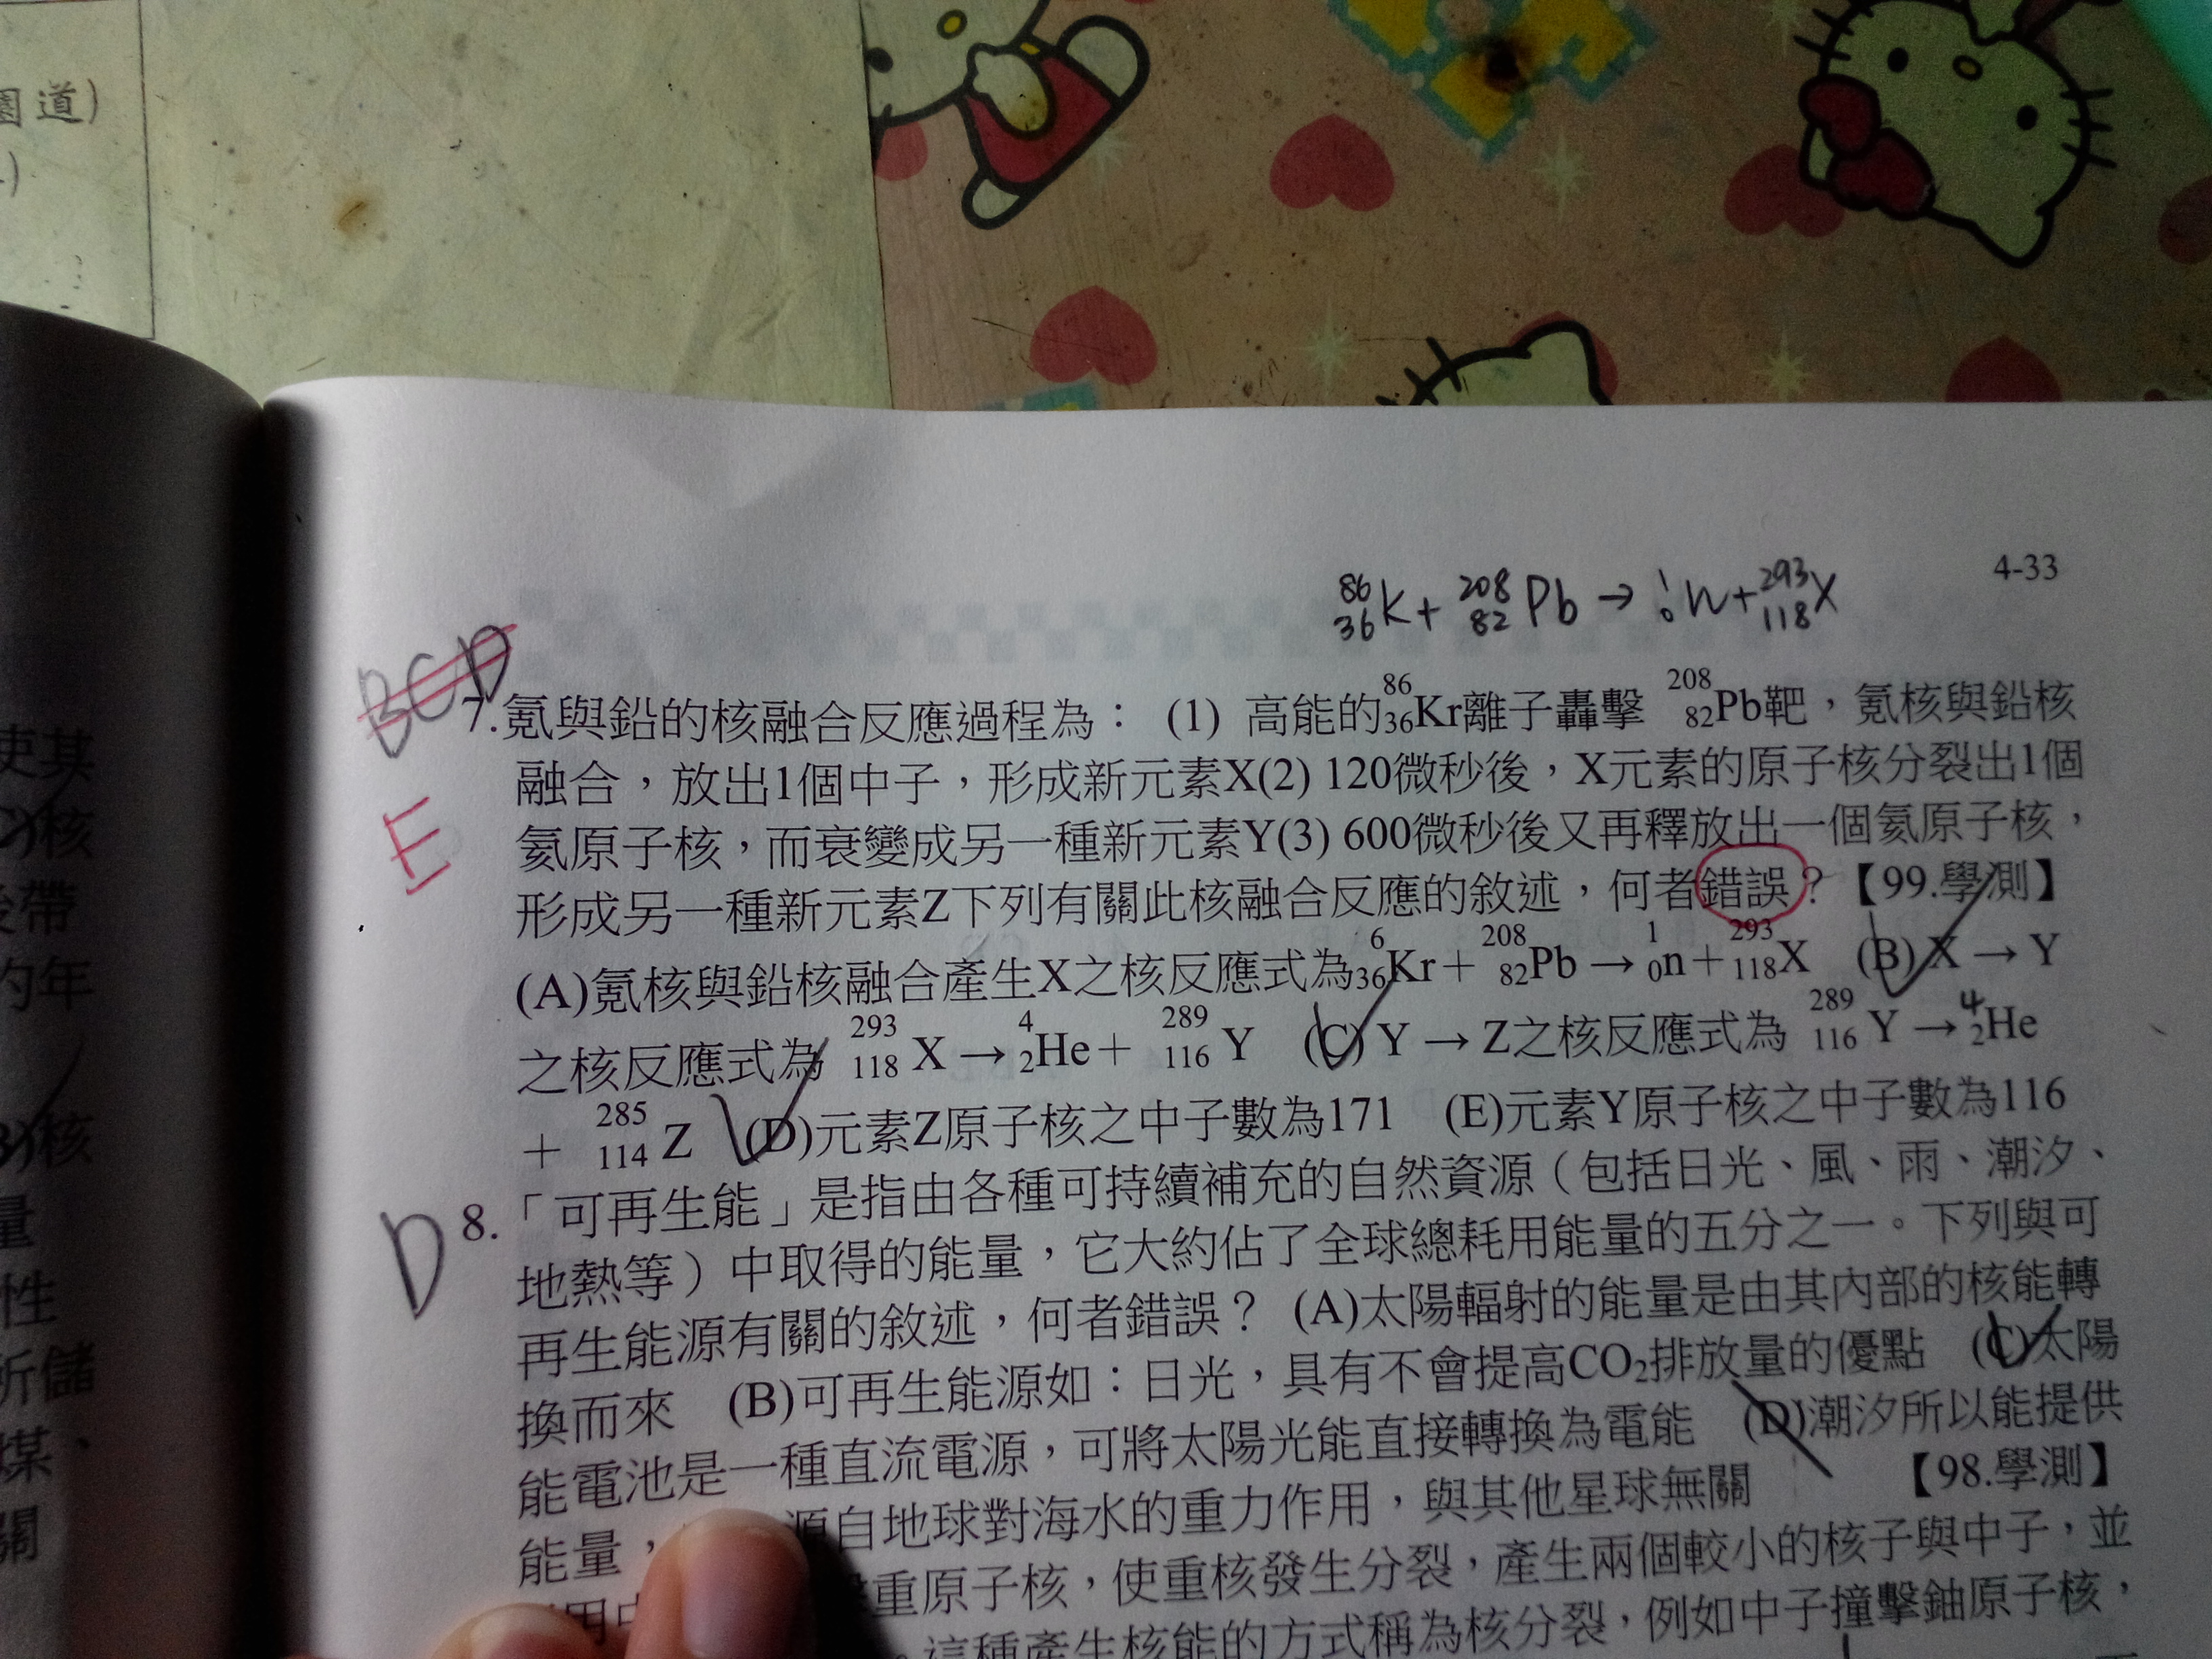 園道)
4-33
⁸⁶₃₆K + ²⁰⁸₈₂Pb → ¹₀n + ²⁹³₁₁₈X
BCD
E
7.氪與鉛的核融合反應過程為：(1) 高能的⁸⁶₃₆Kr離子轟擊 ²⁰⁸₈₂Pb靶，氪核與鉛核
融合，放出1個中子，形成新元素X(2) 120微秒後，X元素的原子核分裂出1個
氦原子核，而衰變成另一種新元素Y(3) 600微秒後又再釋放出一個氦原子核，
形成另一種新元素Z下列有關此核融合反應的敘述，何者錯誤？【99.學測】
(A)氪核與鉛核融合產生X之核反應式為⁶₃₆Kr＋²⁰⁸₈₂Pb→¹₀n＋²⁹³₁₁₈X (B) X → Y
之核反應式為 ²⁹³₁₁₈X→⁴₂He＋²⁸⁹₁₁₆Y (C) Y → Z之核反應式為 ²⁸⁹₁₁₆Y→⁴₂He
＋ ²⁸⁵₁₁₄Z (D)元素Z原子核之中子數為171 (E)元素Y原子核之中子數為116
D
8.「可再生能」是指由各種可持續補充的自然資源（包括日光、風、雨、潮汐、
地熱等）中取得的能量，它大約佔了全球總耗用能量的五分之一。下列與可
再生能源有關的敘述，何者錯誤？ (A)太陽輻射的能量是由其內部的核能轉
換而來 (B)可再生能源如：日光，具有不會提高CO₂排放量的優點 (C)太陽
能電池是一種直流電源，可將太陽光能直接轉換為電能 (D)潮汐所以能提供
能量，源自地球對海水的重力作用，與其他星球無關 【98.學測】
重原子核，使重核發生分裂，產生兩個較小的核子與中子，並
這種產生核能的方式稱為核分裂，例如中子撞擊鈾原子核，
使其
(C)核
後帶
的年
(B)核
量
性
所儲
煤、
關